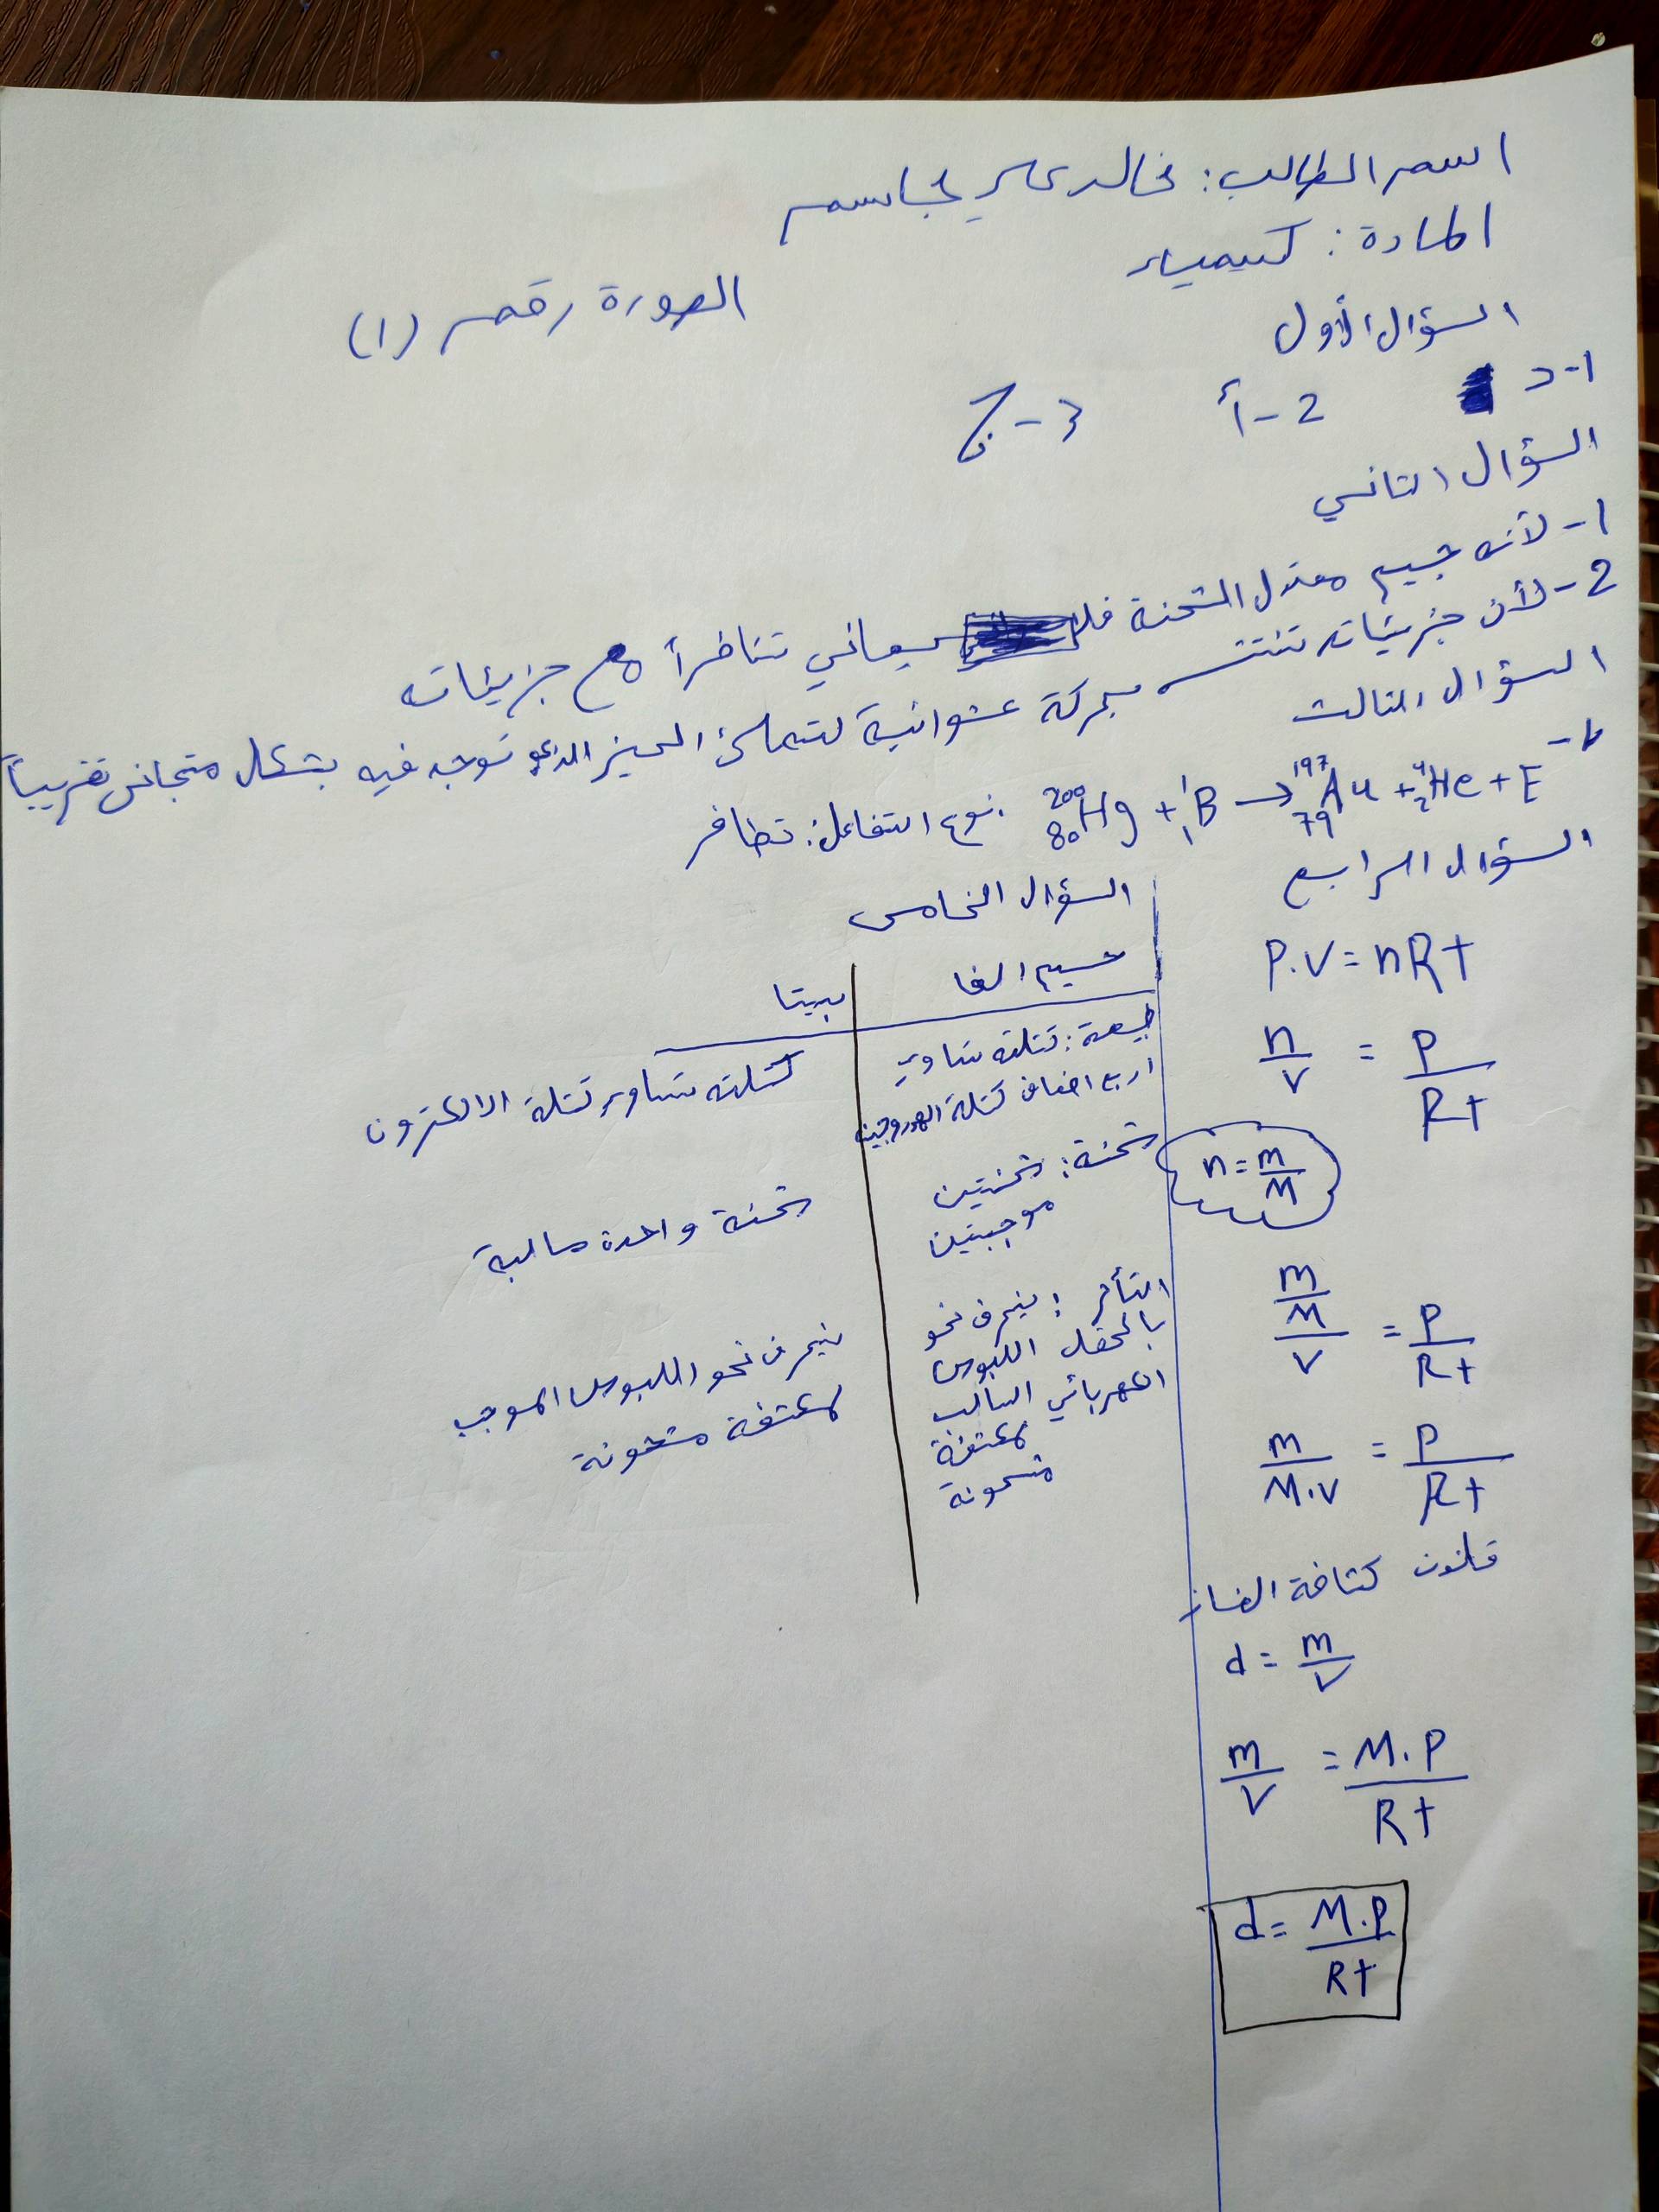 اسم الطالب: خالد علي جاسم
المادة: كيمياء
الصورة رقم (١)
السؤال الأول
1- د 2- أ 3- ج
السؤال الثاني
1- لأنه جسيم معتدل الشحنة فلا يعاني تنافراً مع جزيئات
2- لأن جزيئاته تنتشر بحركة عشوائية لتملئ الحيز الذي توجد فيه بشكل متجانس تقريباً
السؤال الثالث
²⁰⁰₈₀Hg + ¹₁B → ¹⁹⁷₇₉Au + ⁴₂He + E نوع التفاعل: تطافر
السؤال الرابع
P.V = nRt
n/V = P/Rt
n = m/M
m/M/V = P/Rt
m/M.V = P/Rt
قانون كثافة الغاز
d = m/V
m/V = M.P/Rt
d = M.P/Rt
السؤال الخامس
جسيم الفا
بيتا
طبيعة: كتلته تساوي
اربع اضعاف كتلة الهيدروجين
كتلته تساوي كتلة الالكترون
شحنة: شحنتين
موجبتين
شحنة واحدة سالبة
التأثر : ينحرف نحو
بالحقل اللبوس
الكهربائي السالب
لمكثفة
مشحونة
ينحرف نحو اللبوس الموجب
لمكثفة مشحونة